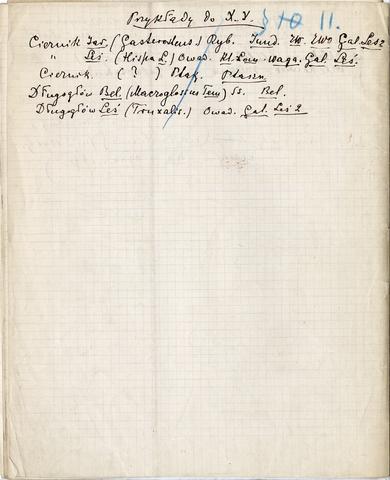 Przykłady do X. V. 11.
Ciernik Jar. (Gasterosteus) Ryb. Jund. Gal. Leś 2
" Leś. (Hispa L.) Owad. Kl. Waga. Gal. Leś.
Ciernik. ( ? ) Ptak. Ptasen
Długogłów Bel. (Macroglossus Tem.) Ss. Bel.
Długogłów Leś (Truxalis.) Owad. Gal. Leś 2